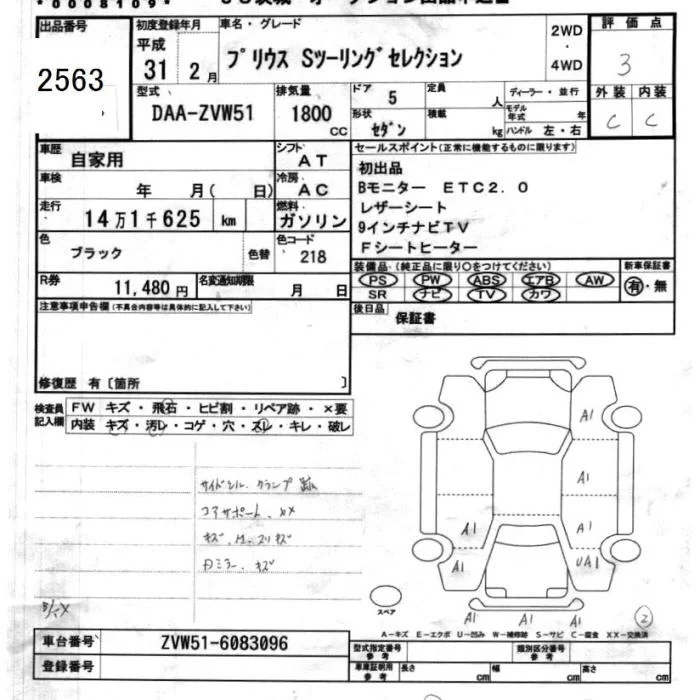 *0008109*
出品番号 初度登録年月 車名・グレード 2WD・4WD 評価点
2563 平成 31 2月 プリウス Sツーリングセレクション 3
型式 排気量 ドア 定員 ディーラー・並行 外装 内装
DAA-ZVW51 1800 CC 5 人 モデル年式 年 C C
形状 セダン 積載 kg ハンドル 左・右
車歴 自家用 シフト AT セールスポイント(正常に機能するものに限ります)
車検 年 月( 日) 冷房 AC 初出品
Bモニター ETC2.0
走行 14万1千625 km 燃料 ガソリン レザーシート
9インチナビTV
色 ブラック 色替 色コード 218 Fシートヒーター
R券 11,480円 名変通知期限 月 日 装備品(純正品に限り○をつけてください) 新車保証書
PS PW ABS エアB AW 有・無
SR ナビ TV カワ
注意事項申告欄(不具合内容等は具体的に記入して下さい) 後日品 保証書
修復歴 有〔箇所 〕
検査員記入欄 FW キズ・飛石・ヒビ割・リペア跡・×要
内装 キズ・汚レ・コゲ・穴・スレ・キレ・破レ
サイドシル クランプ跡
コアサポート、××
キズ、 スリキズ
Dミラー キズ
A1
A1
A1
A1 A1
A1 UA1
A1 A1 A1
スペア
2
A-キズ E-エクボ U-凹み W-補修跡 S-サビ C-腐食 XX-交換済
車台番号 ZVW51-6083096 型式指定番号 参考 類別区分番号 参考
登録番号 車庫証明用 参考 長さ cm 幅 cm 高さ cm